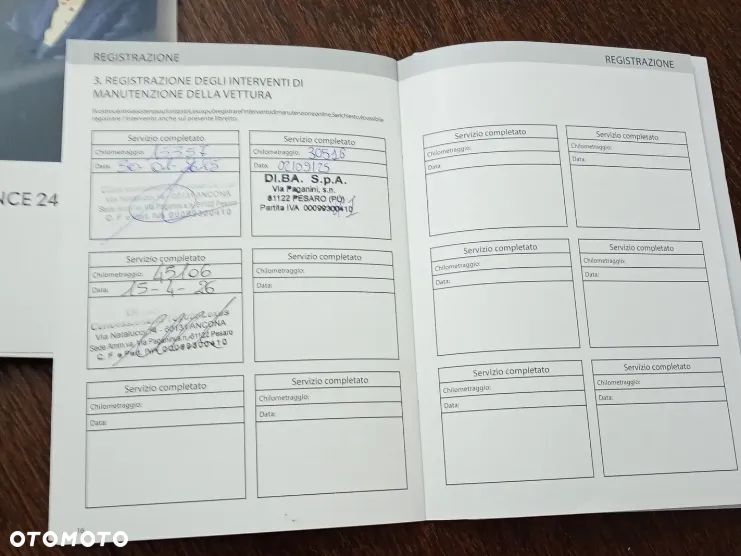 NCE 24
REGISTRAZIONE
3. REGISTRAZIONE DEGLI INTERVENTI DI
MANUTENZIONE DELLA VETTURA
registrare l'intervento anche sul presente libretto.
Servizio completato
Chilometraggio:
Data:
Via
ANCONA
C. F. e Part. IVA 00099300410
Servizio completato
Chilometraggio: 30516
Data: 02/09/25
DI.BA. S.p.A.
Via Paganini, s.n.
61122 PESARO (PU)
Partita IVA 00099300410
Servizio completato
Chilometraggio: 45106
Data: 15-4-26
Via Natalucci - 60131 ANCONA
Sede Amm.va, Via Paganini s.n. 61122 Pesaro
C. F. e Part. IVA 00099300410
Servizio completato
Chilometraggio:
Data:
Servizio completato
Chilometraggio:
Data:
Servizio completato
Chilometraggio:
Data:
16
REGISTRAZIONE
Servizio completato
Chilometraggio:
Data:
Servizio completato
Chilometraggio:
Data:
Servizio completato
Chilometraggio:
Data:
Servizio completato
Chilometraggio:
Data:
Servizio completato
Chilometraggio:
Data:
Servizio completato
Chilometraggio:
Data:
OTOMOTO